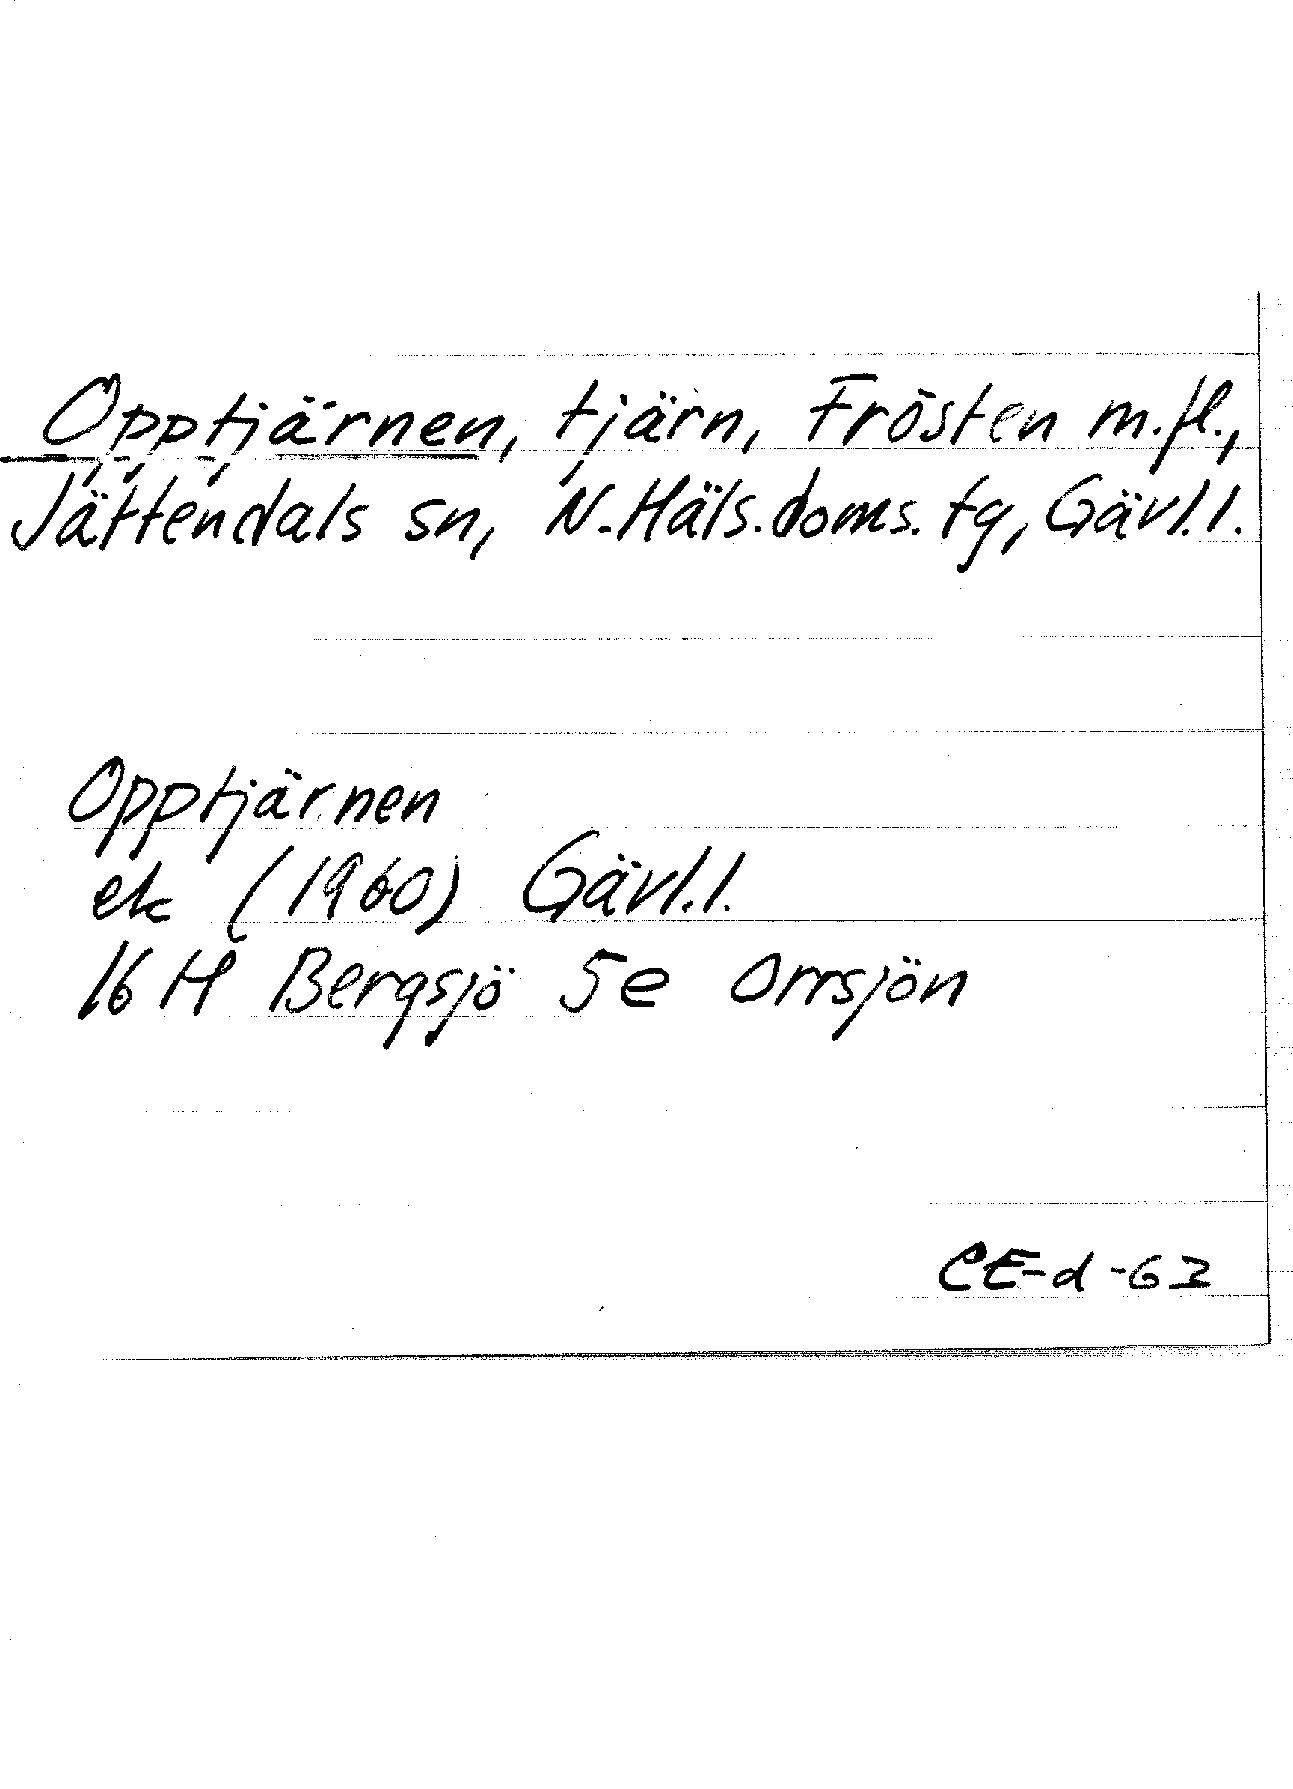 Opptjärnen, tjärn, Frösten m.fl.,
Jättendals sn, N.Häls.doms.tg, Gävl.l.
Opptjärnen
ek (1960) Gävl.l.
16 H Bergsjö 5e Orrsjön
CE-d-63